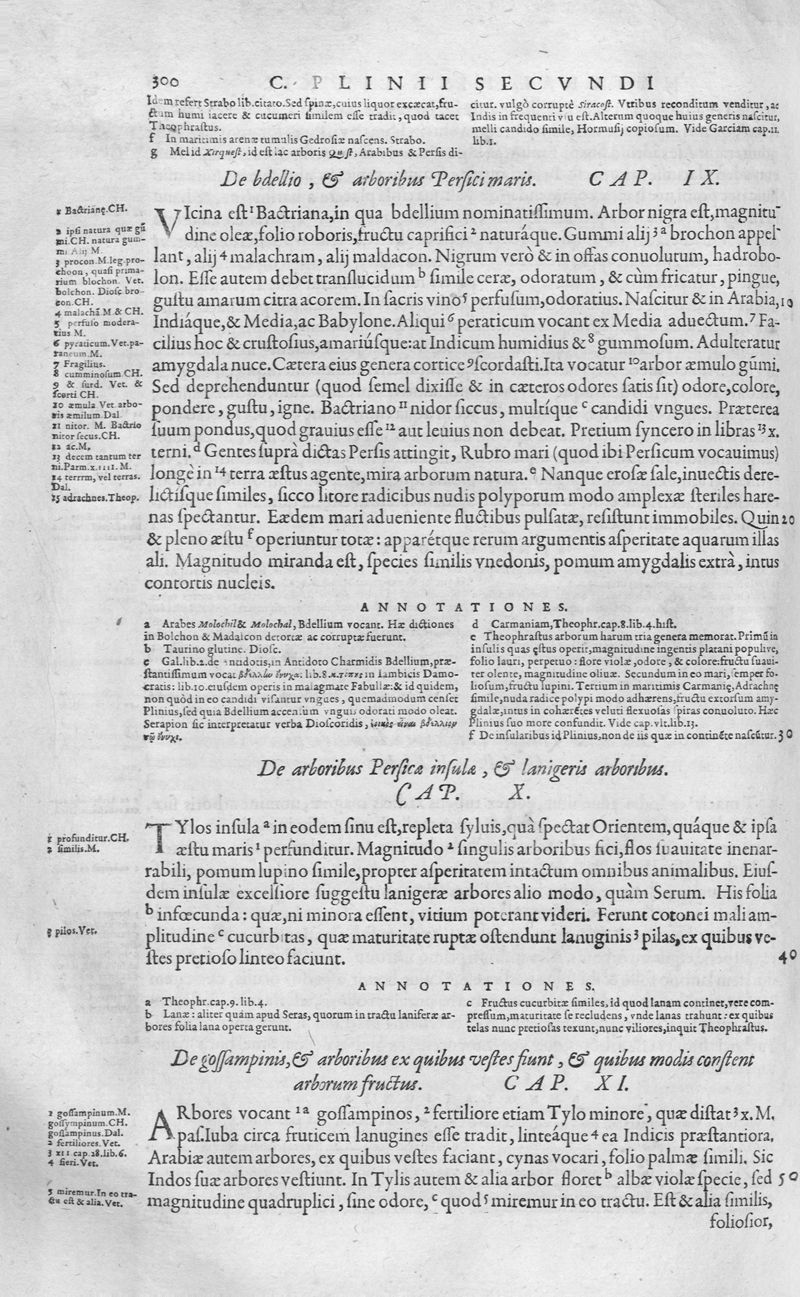 300 C. PLINII SECVNDI
Idem refert Strabo lib.citato.Sed spinæ,cuius liquor excæcat,fru-
ctum humi iacere & cucumeri similem esse tradit,quod tacet
Theophrastus.
f In maritimis arenæ tumulis Gedrosiæ nascens. Strabo.
g Mel id Xirquest, id est lac arboris Quest, Arabibus & Persis di-
citur. vulgò corruptè Siracost. Vtribus reconditum venditur, ac
Indis in frequenti vsu est.Alterum quoque huius generis nascitur,
melli candido simile, Hormusij copiosum. Vide Garciam cap.11.
lib.1.
De bdellio , & arboribus Persici maris. CAP. IX.
1 Bactrianę.CH.
2 ipsi natura quæ gū
mi.CH. natura gum-
mi Alij M.
3 procon.M.leg.pro-
choon, quasi prima-
rium blochon. Vet.
bolchon. Diosc bro-
con.CH.
4 malachā M & CH.
5 perfusio modera-
tius M.
6 pyraticum.Vet.pa-
rancum.M.
7 Fragilius.
8 cumminosum.CH.
9 & surd. Vet. &
scorti CH.
10 æmula Vet. arbo-
ris æmilum.Dal.
11 nitor. M. Bactrio
nitor secus.CH.
12 ac.M.
13 decem tantum ter
ni.Parm.x.1111.M.
14 terrrm, vel terras.
Dal.
15 adrachnes.Theop.
VIcina est¹Bactriana,in qua bdellium nominatissimum. Arbor nigra est,magnitu-
dine oleæ,folio roboris,fructu caprifici ² naturáque. Gummi alij ³ ᵃ brochon appel-
lant, alij ⁴ malachram, alij maldacon. Nigrum verò & in offas conuolutum, hadrobo-
lon. Esse autem debet translucidum ᵇ simile ceræ, odoratum, & cùm fricatur, pingue,
gustu amarum citra acorem. In sacris vino⁵ perfusum,odoratius. Nascitur & in Arabia, 10
Indiáque,& Media,ac Babylone. Aliqui ⁶ peraticum vocant ex Media aduectum.⁷ Fa-
cilius hoc & crustosius,amariúsque:at Indicum humidius & ⁸ gummosum. Adulteratur
amygdala nuce. Cætera eius genera cortice ⁹scordasti.Ita vocatur ¹⁰arbor æmulo gūmi.
Sed deprehenduntur (quod semel dixisse & in cæteros odores satis sit) odore,colore,
pondere, gustu, igne. Bactriano ¹¹ nidor siccus, multíque ᶜ candidi vngues. Præterea
suum pondus,quod grauius esse ¹² aut leuius non debeat. Pretium syncero in libras ¹³ x.
terni.ᵈ Gentes suprà dictas Persis attingit, Rubro mari (quod ibi Persicum vocauimus)
longè in ¹⁴ terra æstus agente,mira arborum natura.ᵉ Nanque erosæ sale,inuectis dere-
lictisque similes, sicco litore radicibus nudis polyporum modo amplexæ steriles hare-
nas spectantur. Eædem mari adueniente fluctibus pulsatæ, resistunt immobiles. Quin 20
& pleno æstu ᶠ operiuntur totæ: apparétque rerum argumentis asperitate aquarum illas
ali. Magnitudo miranda est, species similis vnedonis, pomum amygdalis extrà, intus
contortis nucleis.
ANNOTATIONES.
a Arabes Molochil & Molochal, Bdellium vocant. Hæ dictiones
in Bolchon & Madalcon detortæ ac corruptæ fuerunt.
b Taurino glutine. Diosc.
c Gal.lib.2.de antidotis,in Antidoto Charmidis Bdellium,præ-
stantissimum vocat βδελλίου ὄνυχα: lib.8.κ.τόπυς in Iambicis Damo-
cratis: lib.10.eiusdem operis in malagmate Fabullæ:& id quidem,
non quòd in eo candidi visantur vngues, quemadmodum censet
Plinius,sed quia Bdellium accensum vnguis odorati modo oleat.
Serapion sic interpretatur verba Dioscoridis,
d Carmaniam,Theophr.cap.8.lib.4.hist.
e Theophrastus arborum harum tria genera memorat. Primū in
insulis quas ęstus operit,magnitudine ingentis platani populive,
folio lauri, perpetuo: flore violæ ,odore , & colore:fructu suaui-
ter olente, magnitudine oliuæ. Secundum in eo mari,semper fo-
liosum,fructu lupini. Tertium in maritimis Carmanię,Adrachnę
simile,nuda radice polypi modo adhærens,fructu extorsum amy-
gdalæ,intus in cohærétes veluti flexuosas spiras conuoluto. Hæc
Plinius suo more confundit. Vide cap.vlt.lib.13.
f De insularibus id Plinius,non de iis quæ in continēte nascūtur. 30
De arboribus Persicæ insulæ , & lanigeris arboribus.
CAP. X.
1 profunditur.CH.
2 similis.M.
3 pilos.Vet.
TYlos insula ᵃ in eodem sinu est,repleta syluis,quà spectat Orientem,quáque & ipsa
æstu maris¹ perfunditur. Magnitudo ² singulis arboribus fici,flos suauitate inenar-
rabili, pomum lupino simile,propter asperitatem intactum omnibus animalibus. Eius-
dem insulæ excelsiore suggestu lanigeræ arbores alio modo, quàm Serum. His folia
ᵇ infœcunda: quæ,ni minora essent, vitium poterant videri. Ferunt cotonei mali am-
plitudine ᶜ cucurbitas, quæ maturitate ruptæ ostendunt lanuginis ³ pilas,ex quibus ve-
stes pretioso linteo faciunt. 40
ANNOTATIONES.
a Theophr.cap.9.lib.4.
b Lanæ: aliter quàm apud Seras, quorum in tractu laniferæ ar-
bores folia lana operta gerunt.
c Fructus cucurbitæ similes, id quod lanam continet,vere com-
pressum,maturitate se recludens, vnde lanas trahunt: ex quibus
telas nunc pretiosas texunt,nunc viliores,inquit Theophrastus.
De gossampinis,& arboribus ex quibus vestes fiunt, & quibus modis constent
arborum fructus. CAP. XI.
1 gossampinum.M.
gossympinum.CH.
gossampinus.Dal.
2 fertiliores.Vet.
3 x11 cap.28.lib.6.
4 fieri.Vet.
5 miremur.In eo tra-
ctu est & alia.Vet.
ARbores vocant ¹ᵃ gossampinos, ² fertiliore etiam Tylo minore, quæ distat ³ x.M.
pas.Iuba circa fruticem lanugines esse tradit, linteáque ⁴ ea Indicis præstantiora.
Arabiæ autem arbores, ex quibus vestes faciant, cynas vocari, folio palmæ simili. Sic
Indos suæ arbores vestiunt. In Tylis autem & alia arbor floret ᵇ albæ violæ specie, sed 50
magnitudine quadruplici, sine odore, ᶜ quod ⁵ miremur in eo tractu. Est & alia similis,
foliosior,